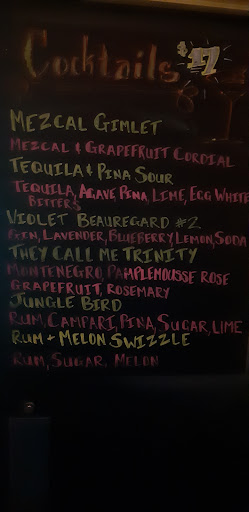 Cocktails $17
MEZCAL GIMLET
MEZCAL & GRAPEFRUIT CORDIAL
TEQUILA & PINA SOUR
TEQUILA, AGAVE PINA, LIME, EGG WHITE
BITTERS
VIOLET BEAUREGARD #2
GIN, LAVENDER, BLUEBERRY LEMON, SODA
THEY CALL ME TRINITY
MONTENEGRO, PAMPLEMOUSSE ROSE
GRAPEFRUIT, ROSEMARY
JUNGLE BIRD
RUM, CAMPARI, PINA, SUGAR, LIME
RUM + MELON SWIZZLE
RUM, SUGAR, MELON